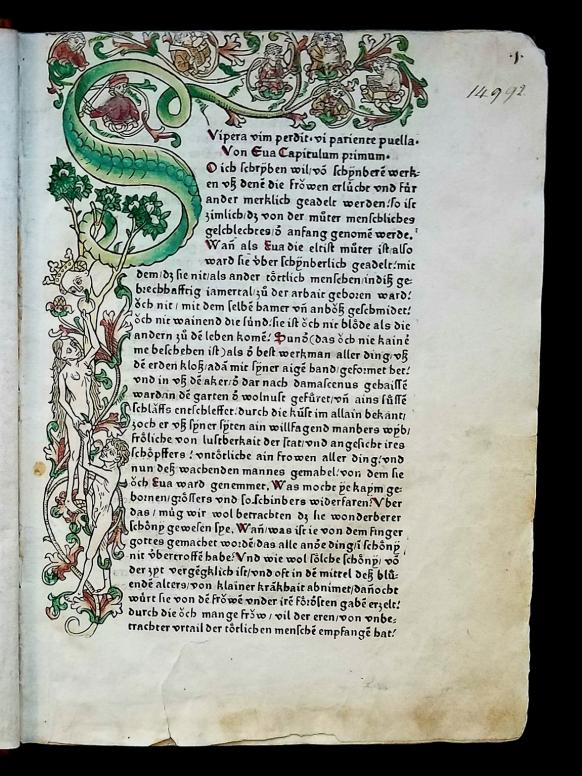 .1.
14992
Vipera vim perdit. vi pariente puella.
Von Eua Capitulum primum.
O ich schrÿben wil/vō schÿnberē werk-
en vß denē die frŏwen erlúcht vnd für
ander merklich geadelt werden/so ist
zimlich/dz von der můter menschliches
geschlechtes/ð anfang genomē werde.
Wañ als Eua die eltist můter ist/also
ward sie vber schÿnberlich geadelt/mit
dem/dz sie nit/als ander tŏtlich menschen/indiß ge-
brechhafftig iamertal/zů der arbait geboren ward/
ŏch nit/mit dem selbē hamer vñ anbŏß geschmidet/
ŏch nit wainend die súnd/sie ist ŏch nit blŏde als die
andern zů dē leben komē/ Sunð(das ŏch nie kainē
me beschehen ist)als ð best werkman aller ding/vß
dē erden kloß/adā mit sÿner aigē hand/geformet het/
vnd in vß dē aker/ð dar nach damascenus gehaissē
ward/in dē garten ð wolnust gefúret/vñ ains sússē
schlăffs entschleffet/durch die kúst im allain bekant/
zoch er vß sÿner sÿten ain willfagend manbers wÿb/
frŏliche von lustberkait der stat/vnd angesicht ires
schŏpffers/vntŏtliche ain frowen aller ding/vnd
nun deß wachenden mannes gemahel/von dem sie
ŏch Eua ward genemmet. Was mocht ÿe kaÿm ge-
bornen/grŏssers vnd so schinbers widerfaren/Vber
das/múg wir wol betrachten dz sie wonderberer
schŏnÿ gewesen sÿe. Wañ/was ist ie von dem finger
gottes gemachet wordē/das alle andē ding/ī schŏnÿ
nit vbertroffē habe/Vnd wie wol sŏlche schŏnÿ/vō
der zÿt vergëgklich ist/vnd oft in dē mittel deß blü-
endē alters/von klainer krākhait abnimet/dañocht
würt sie von dē frŏwē vnder irē fŏrdsten gabē erzelt/
durch die ŏch mange frŏw/vil der eren/von vnbe-
trachter vrtail der tŏtlichen menschē empfangē hat/